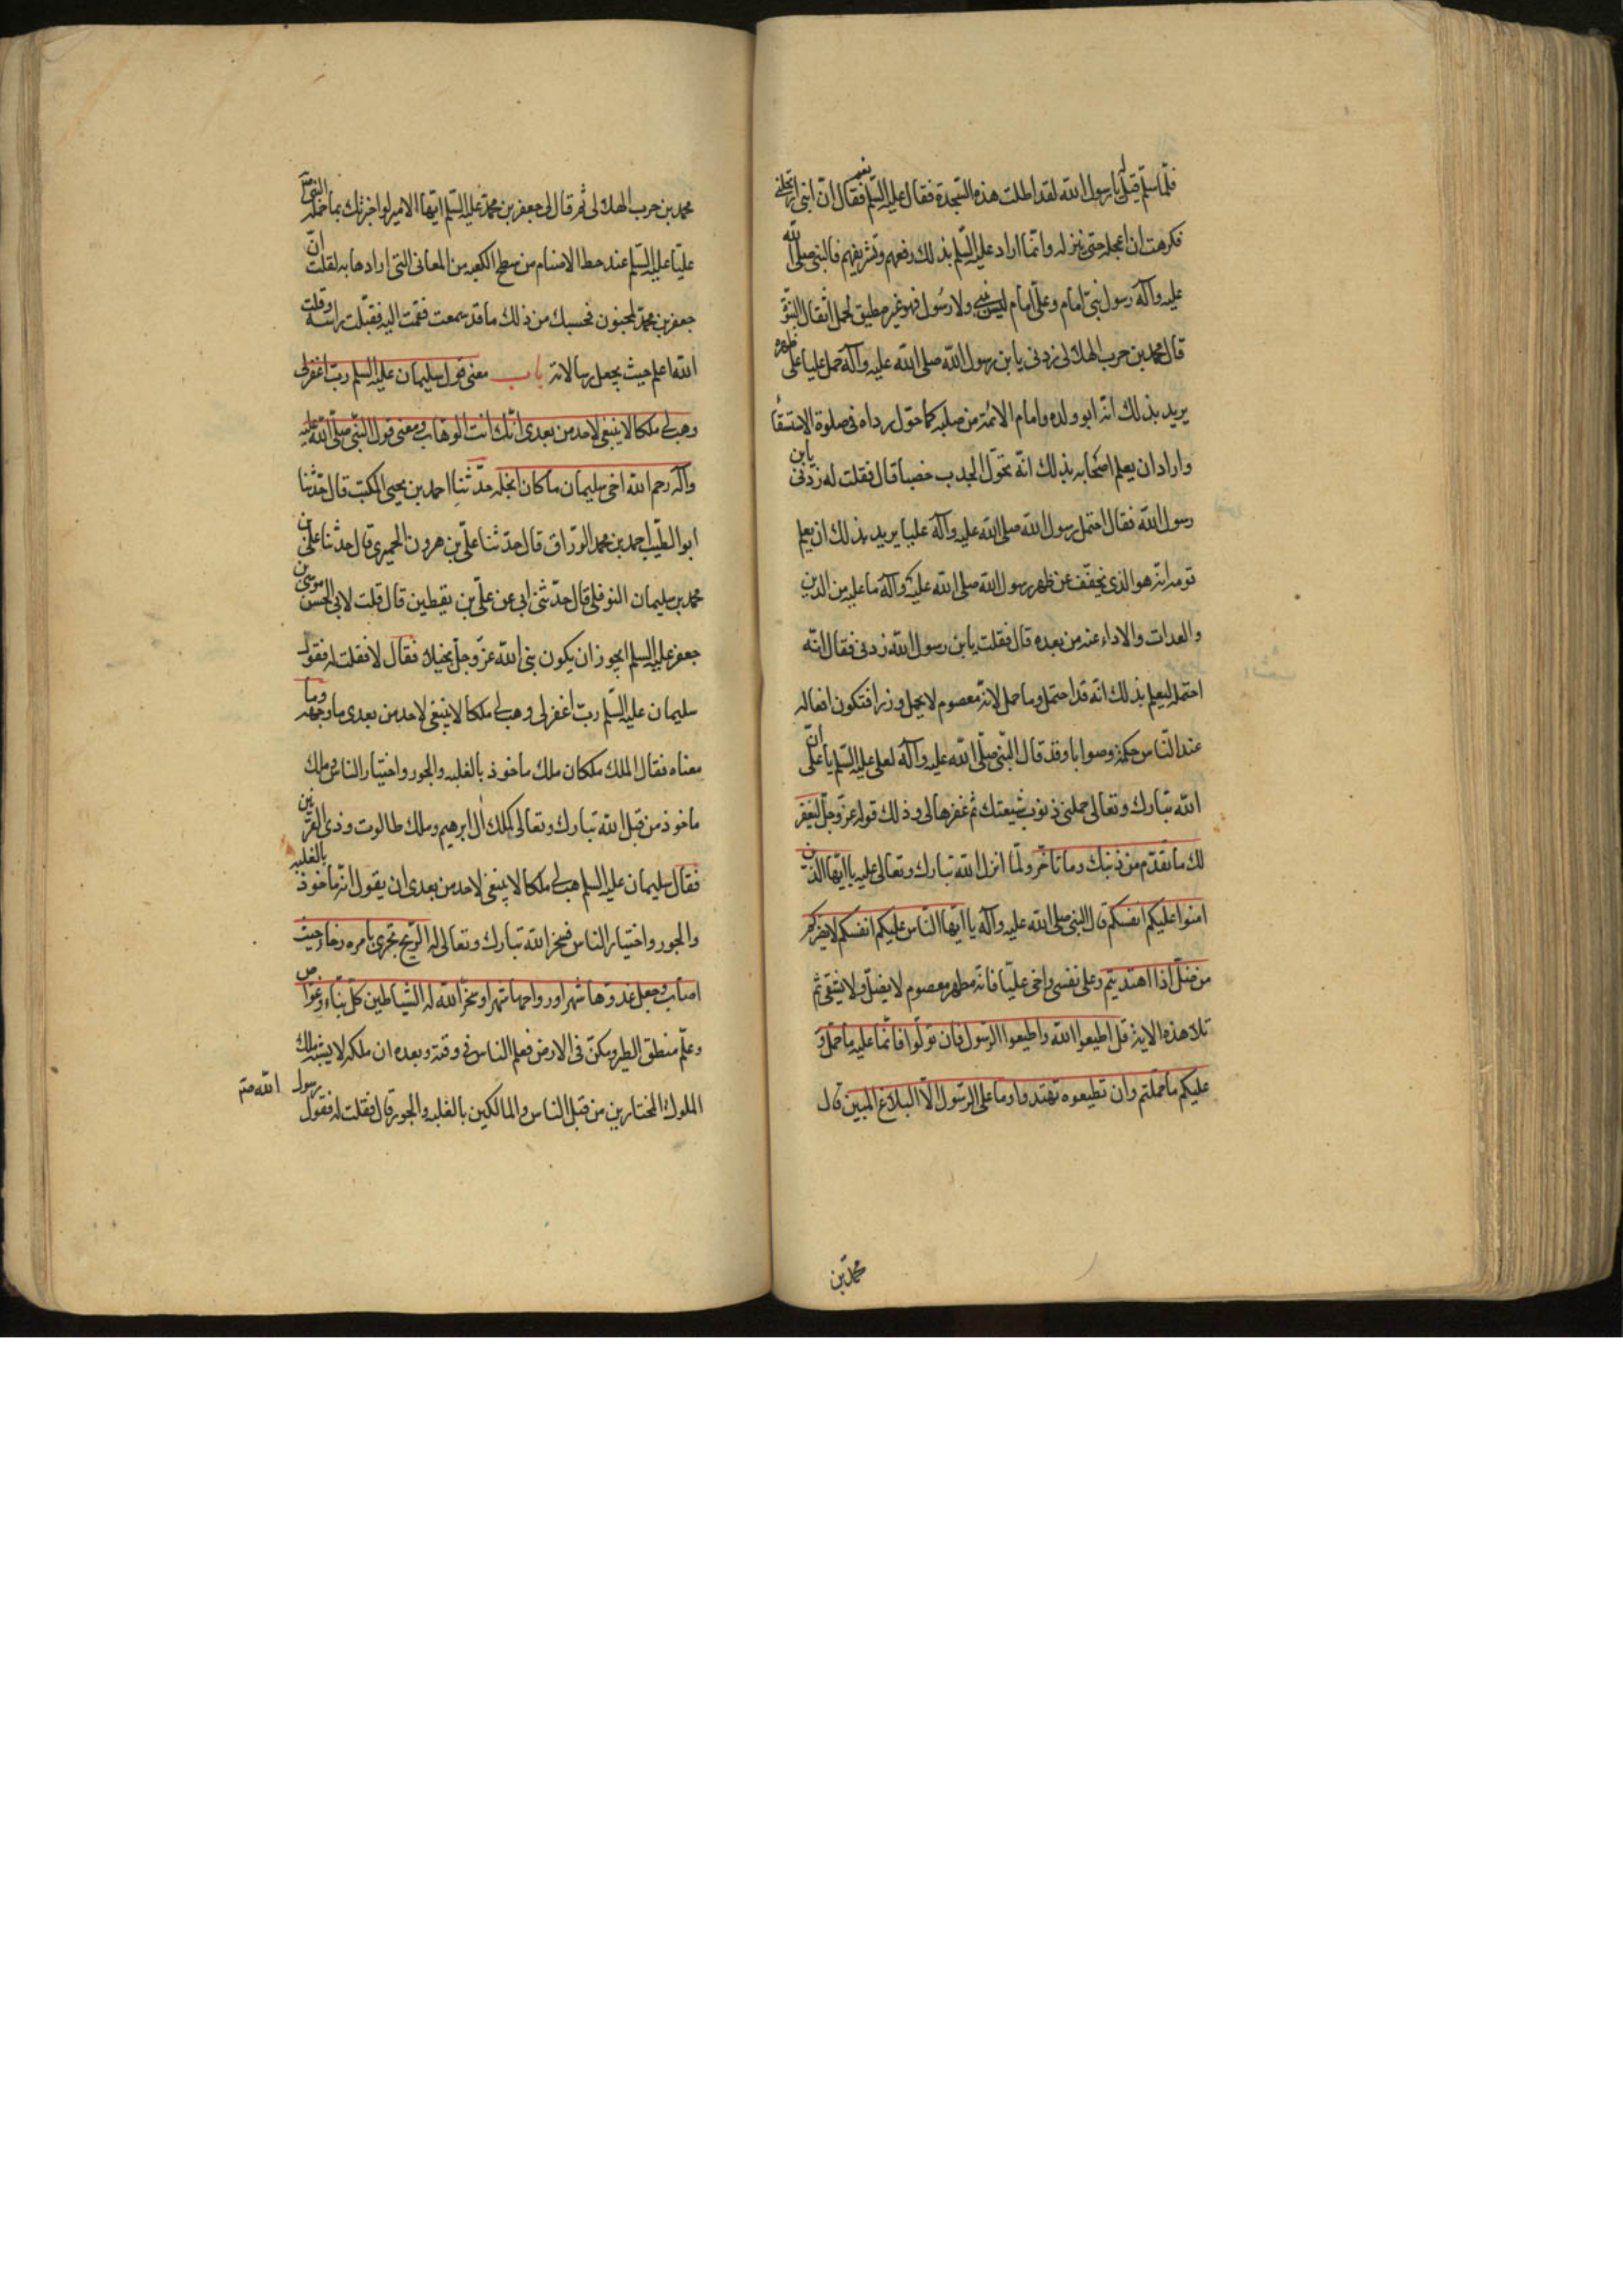 فلمّا سلّم قيل له يا رسول الله لقد اطلت هذه السّجدة فقال عليه السّلم نعم فقال انّ ابنى ارتحلنى
فكرهت ان اعجله حتى ينزل وانّما اراد عليه السّلم بذلك رفعهم وتشريفهم فالنبى صلى الله
عليه وآله رسول نبىّ امام وعلىّ امام ليس بنبى ولا رسول فهو غير مطيق لحمل اثقال النبوّ
قال محمد بن حرب الهلالى زدنى يا بن رسول الله صلى الله عليه وآله حمل عليا على ظهره
يريد بذلك انّه ابو ولده وامام الائمّة من صلبه كما حوّل رداه فى صلوة الاستسقا
واراد ان يعلم اصحابه بذلك انّه تحوّل الجدب خصبا قال فقلت له زدنى يابن
رسول الله فقال احتمل رسول الله صلى الله عليه وآله عليا يريد بذلك ان يعلم
قومه انّه هو الذى يخفّف عن ظهر رسول الله صلى الله عليه وآله ما عليه من الدين
والعدات والاداء عنه من بعده قال فقلت يا بن رسول الله زدنى فقال انّه
احتمله ليعلم بذلك انّه قد احتمل وما حمل لانّه معصوم لا يحمل وزرا فتكون افعاله
عند النّاس حكمة وصوابا وقد قال النّبى صلّى الله عليه وآله لعلى عليه السّلم يا على انّ
الله تبارك وتعالى حملنى ذنوب شيعتك ثم غفرها لى وذلك قوله عزّ وجلّ ليغفر
لك ما تقدّم من ذنبك وما تأخّر ولمّا انزل الله تبارك وتعالى عليه يا ايّها الذين
امنوا عليكم انفسكم قال النبى صلى الله عليه وآله يا ايّها النّاس عليكم انفسكم لا يضركم
من ضلّ اذا اهتديتم وعلى نفسى واخى عليّا فانّه مطهر معصوم لا يضلّ ولا يشقى ثم
تلا هذه الاية قل اطيعوا الله واطيعوا الرّسول فان تولّوا فانّما عليه ما حمّل و
عليكم ما حمّلتم وان تطيعوه تهتدوا وما على الرّسول الّا البلاغ المبين قال
محمد بن
محمد بن حرب الهلالى ثم قال لى جعفر بن محمّد عليه السّلم ايّها الامير لو اخبرتك بما حمّله النبى ص
عليّا عليه السّلم عند حط الاصنام من سطح الكعبه من المعانى التى ارادها به لقلت انّ
جعفر بن محمّد لمجنون فحسبك من ذلك ما قد سمعت فقمت اليه فقبّلت راسه وقلت
الله اعلم حيث يجعل رسالاته باب معنى قول سليمان عليه السلم ربّ اغفرلى
وهب لى ملكا لا ينبغى لاحد من بعدى انّك انت الوهّاب ومعنى قول النّبى صلّى الله عليه
وآله رحم الله اخى سليمان ما كان ابخله حدّثنا احمد بن يحيى المكتب قال حدّثنا
ابو الطيّب احمد بن محمد الورّاق قال حدّثنا علىّ بن هرون الحميرى قال حدثنا علىّ بن
محمد بن سليمان النوفلى قال حدّثنى ابى عن علىّ بن يقطين قال قلت لابى الحسن موسى بن
جعفر عليه السلم ايجوز ان يكون نبى الله عزّ وجلّ بخيلا فقال لا فقلت له فقول
سليمان عليه السّلم ربّ اغفرلى وهب لى ملكا لا ينبغى لاحد من بعدى ما وجهه وما
معناه فقال الملك ملكان ملك ماخوذ بالغلبه والجور واختيار الناس وملك
ماخوذ من قبل الله تبارك وتعالى كملك آل ابرهيم وملك طالوت وذى القرنين
فقال سليمان عليه السلم هب لى ملكا لا ينبغى لاحد من بعدى ان يقول انّه ماخوذ بالغلبه
والجور واختيار الناس فسخّر الله تبارك وتعالى له الرّيح تجرى بامره رخاء حيث
اصاب وجعل غدوّها شهرا ورواحها شهرا وسخّر الله له الشّياطين كل بنّاء وغوّاص
وعلّم منطق الطير ومكّن فى الارض فعلم الناس فى وقته وبعده ان ملكه لا يشبه ملك
الملوك المختارين من قبل الناس والمالكين بالغلبه والجور قال فقلت له فقول رسول الله صلم